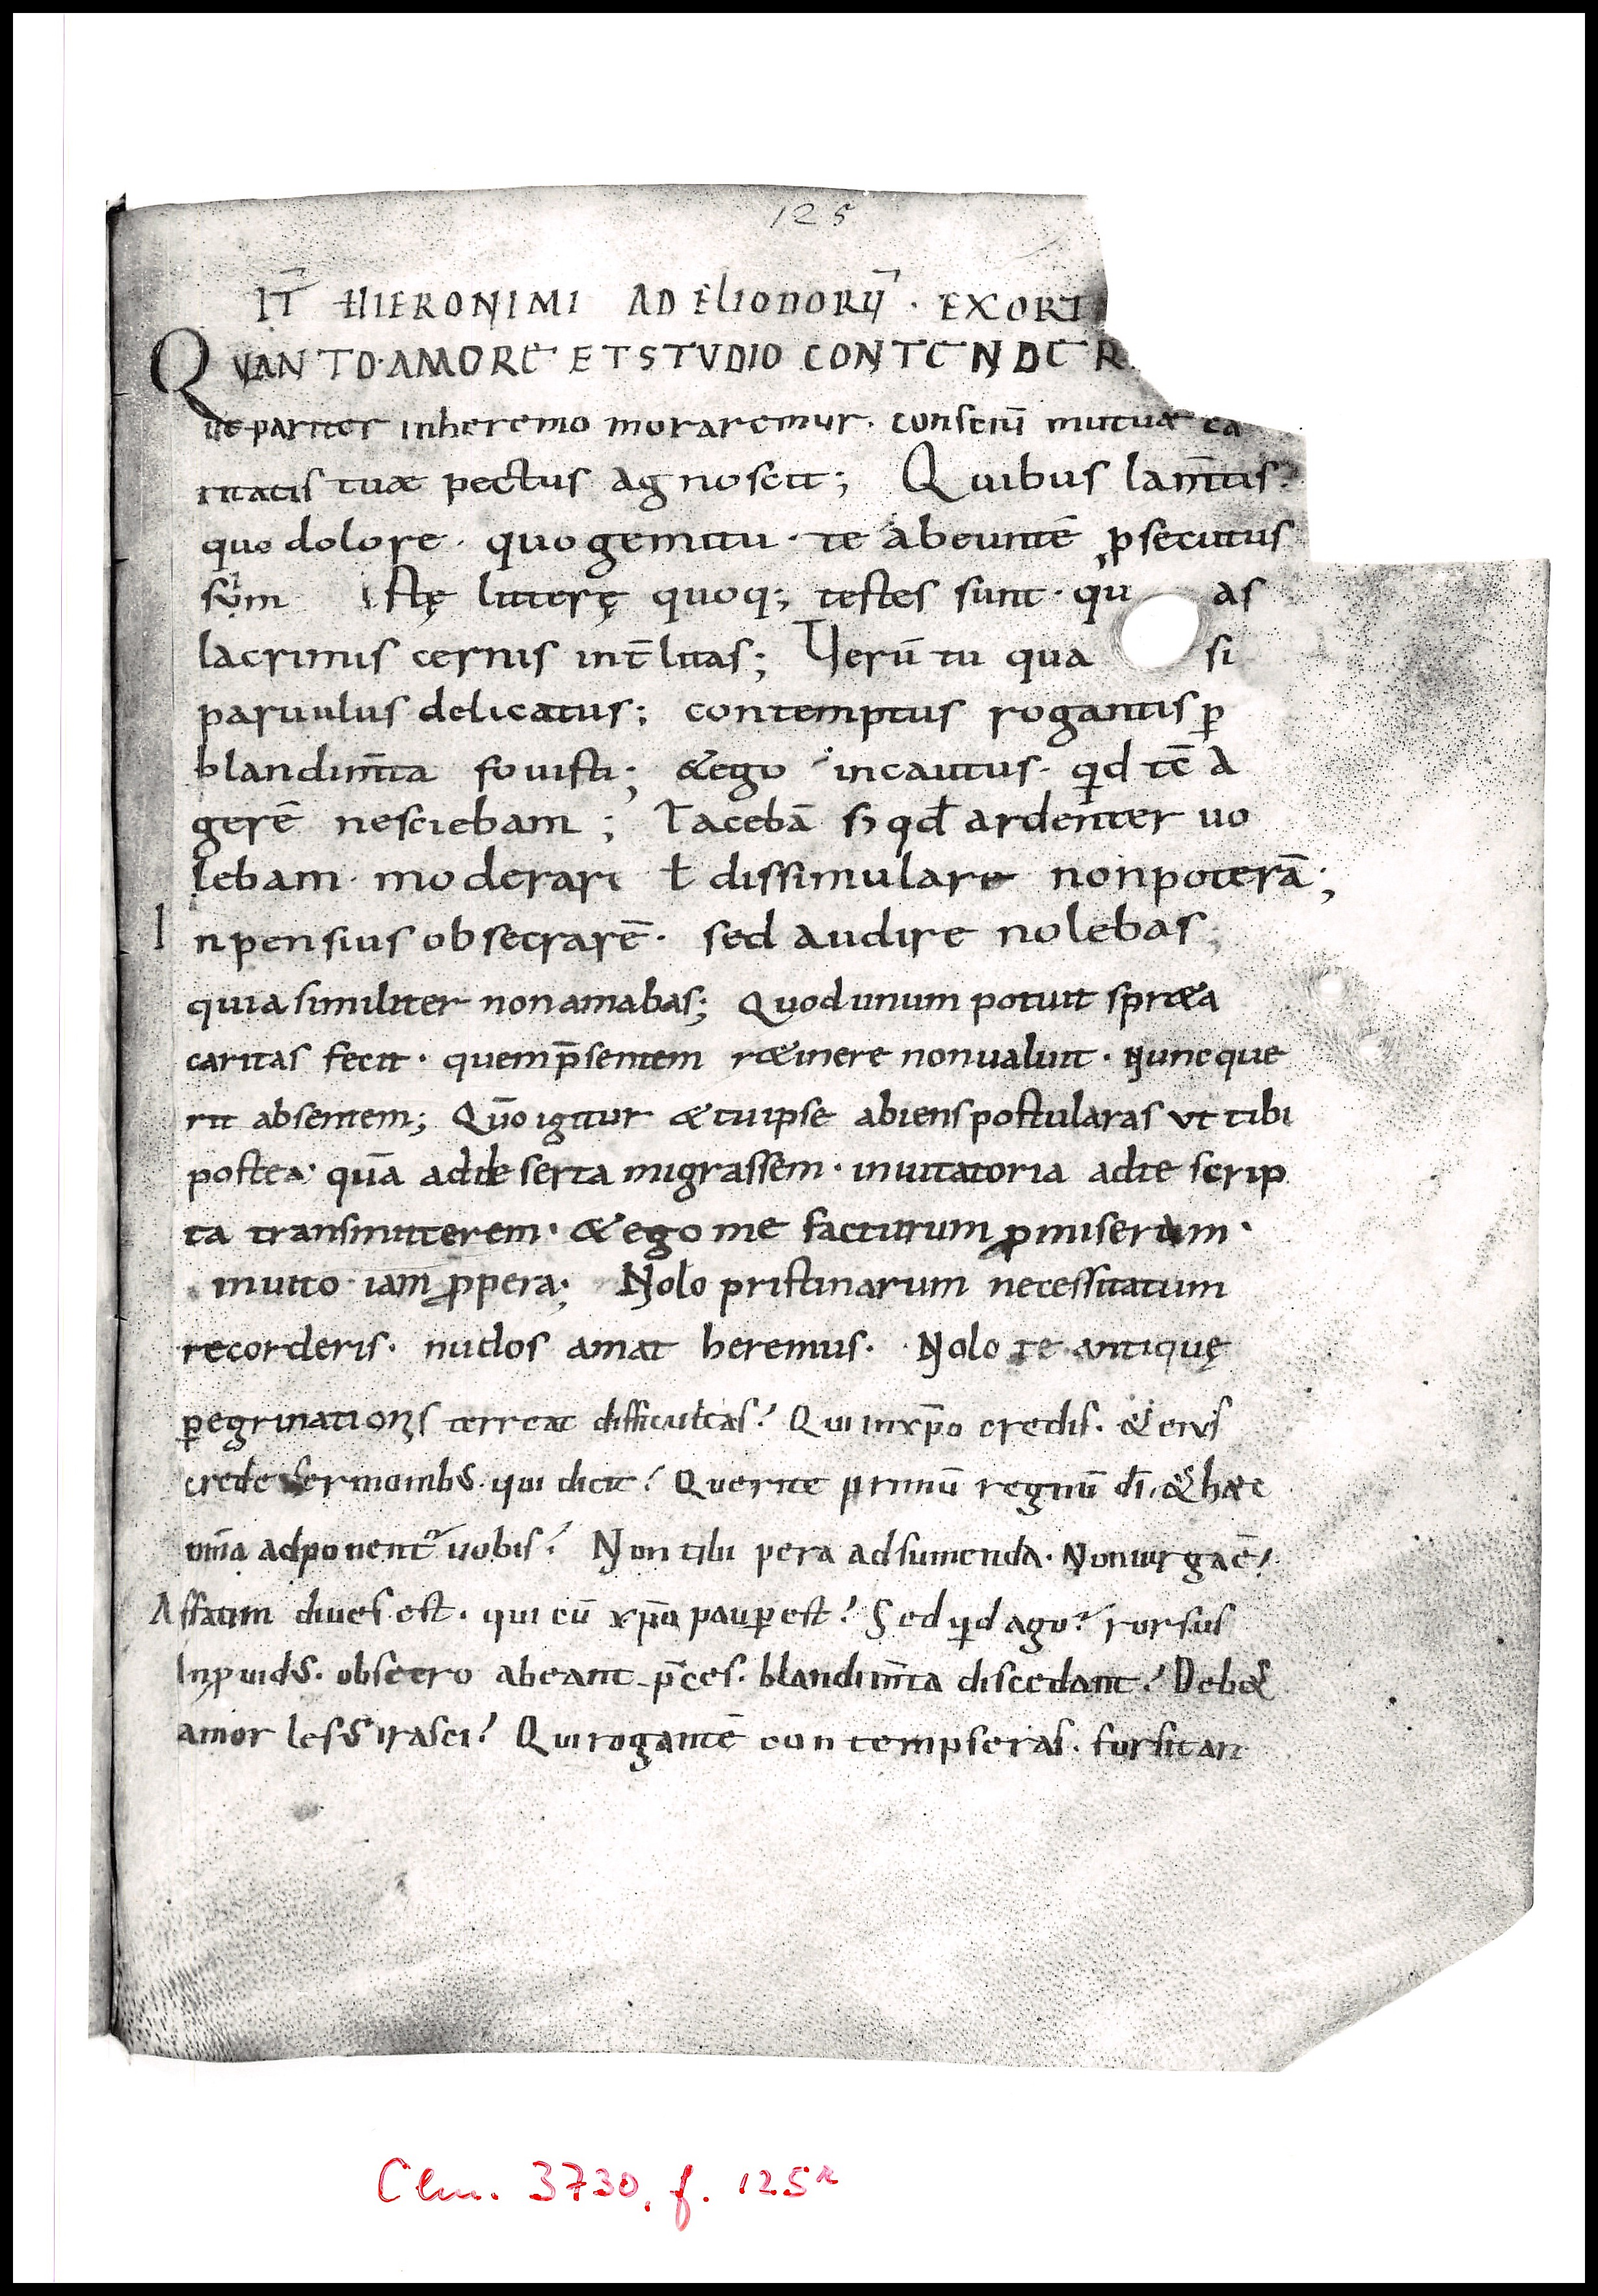 125
IT̄ HIERONIMI AD ELIODORŪ · EXORT
QUANTO · AMORE ET STVDIO CONTENDER
ut pariter in heremo moraremur · consciū mutuæ ca
ritatis tuæ pectus agnoscit ; Quibus lam̄tis ·
quo dolore · quo gemitu · te abeuntē ꝓsecutus
sum Istę litterę quoq; testes sunt · qu as
lacrimis cernis int̄litas ; Uerū tu qua si
paruulus delicatus ; contemptus rogantis ꝑ
blandim̄ta fouisti ; & ego incautus · qid tc̄ a
gerē nesciebam ; Tacebā s; qd̄ ardenter uo
lebam · moderari ł dissimulare non poterā ;
Inpensius obsecrarē · sed audire nolebas ;
quia similiter non amabas ; Quod unum potuit spr&a
caritas fecit · quem p̄sentem r&inere non ualuit · Nunc que
rit absentem ; Qm̄o igitur & tu ipse abiens postularas ut tibi
postea · quā ad deserta migrassem · inuitatoria ad te scrip
ta transmitterem · & ego me facturum ꝓmiseram ·
inuito · iam ꝓpera ; Nolo pristinarum necessitatum
recorderis · nudos amat heremus · Nolo te antiquę
ꝑegrinationis terreat difficultas ? Qui in xp̄o credis · & eius
crede sermonibus · qui dicit ? Querite primū regnū dī · & hæc
om̄a adponent᷑ uobis ? Non tibi pera adsumenda · Non uirga ē ?
Affatim diues est · qui cū xp̄o pauꝑ est ? Sed qid ago ? rursus
Inꝓuidus · obsecro abeant p̄ces · blandim̄ta discedant ? Deb&
amor lesus irasci ? Qui rogantē contempseras · forsitan
Clm. 3730, f. 125r